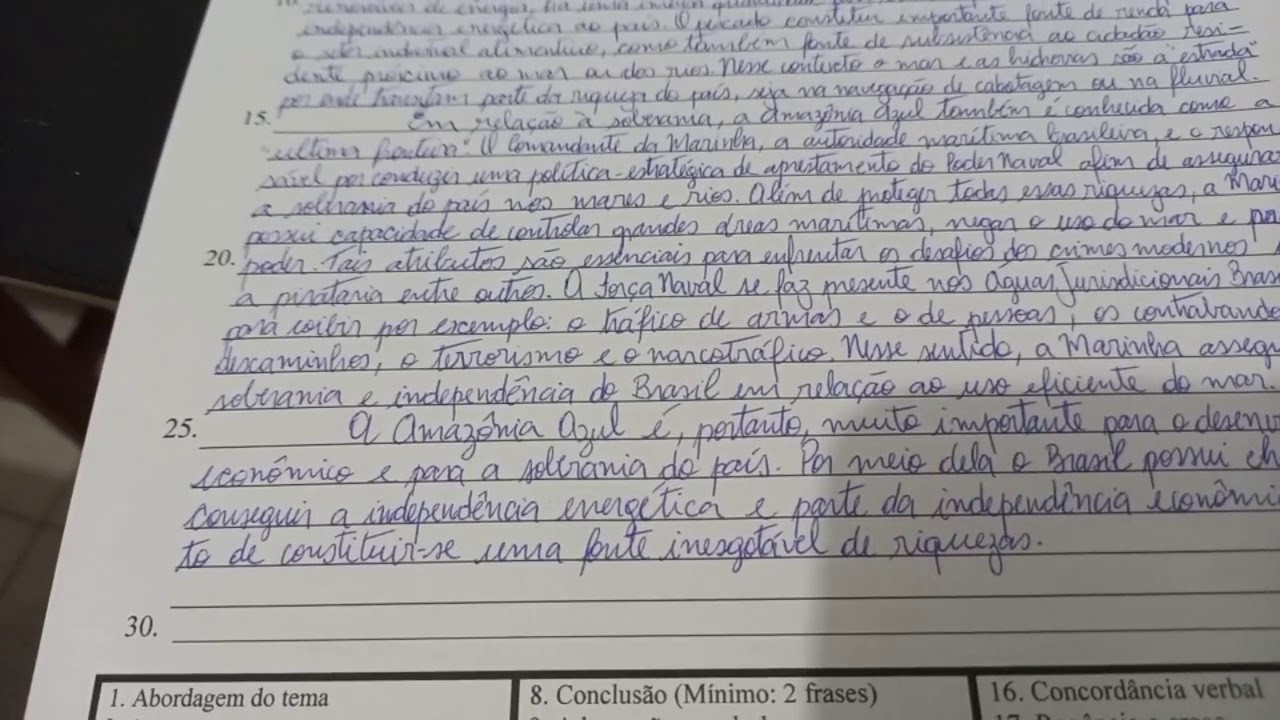 independência energética ao país. O pescado constitui importante fonte de renda para
o setor industrial alimentício, como também fonte de subsistência ao cidadão resi=
dente próximo ao mar ou dos rios. Nesse contexto o mar e as hidrovias são a "estrada"
por onde transitam parte da riqueza do país, seja na navegação de cabotagem ou na fluvial.
15. Em relação à soberania, a Amazônia Azul também é conhecida como a
"última fronteira". O Comandante da Marinha, a autoridade marítima brasileira, é o respon
sável por conduzir uma política-estratégica de aprestamento do Poder Naval afim de assegurar
a soberania do país nos mares e rios. Além de proteger todas essas riquezas, a Mari
possui capacidade de controlar grandes áreas marítimas, negar o uso do mar e
20. poder. Tais atributos são essenciais para enfrentar os desafios dos crimes modernos
a pirataria entre outros. A Força Naval se faz presente nos Águas Jurisdicionais Bras
para coibir por exemplo: o tráfico de armas e o de pessoas, os contrabando
descaminhos, o terrorismo e o narcotráfico. Nesse sentido, a Marinha assegu
soberania e independência do Brasil em relação ao uso eficiente do mar.
25. A Amazônia Azul é, portanto, muito importante para o desenv
econômico e para a soberania do país. Por meio dela o Brasil possui ch
conseguir a independência energética e parte da independência econômi
to de constituir-se uma fonte inesgotável de riquezas.
30.
1. Abordagem do tema
8. Conclusão (Mínimo: 2 frases)
16. Concordância verbal